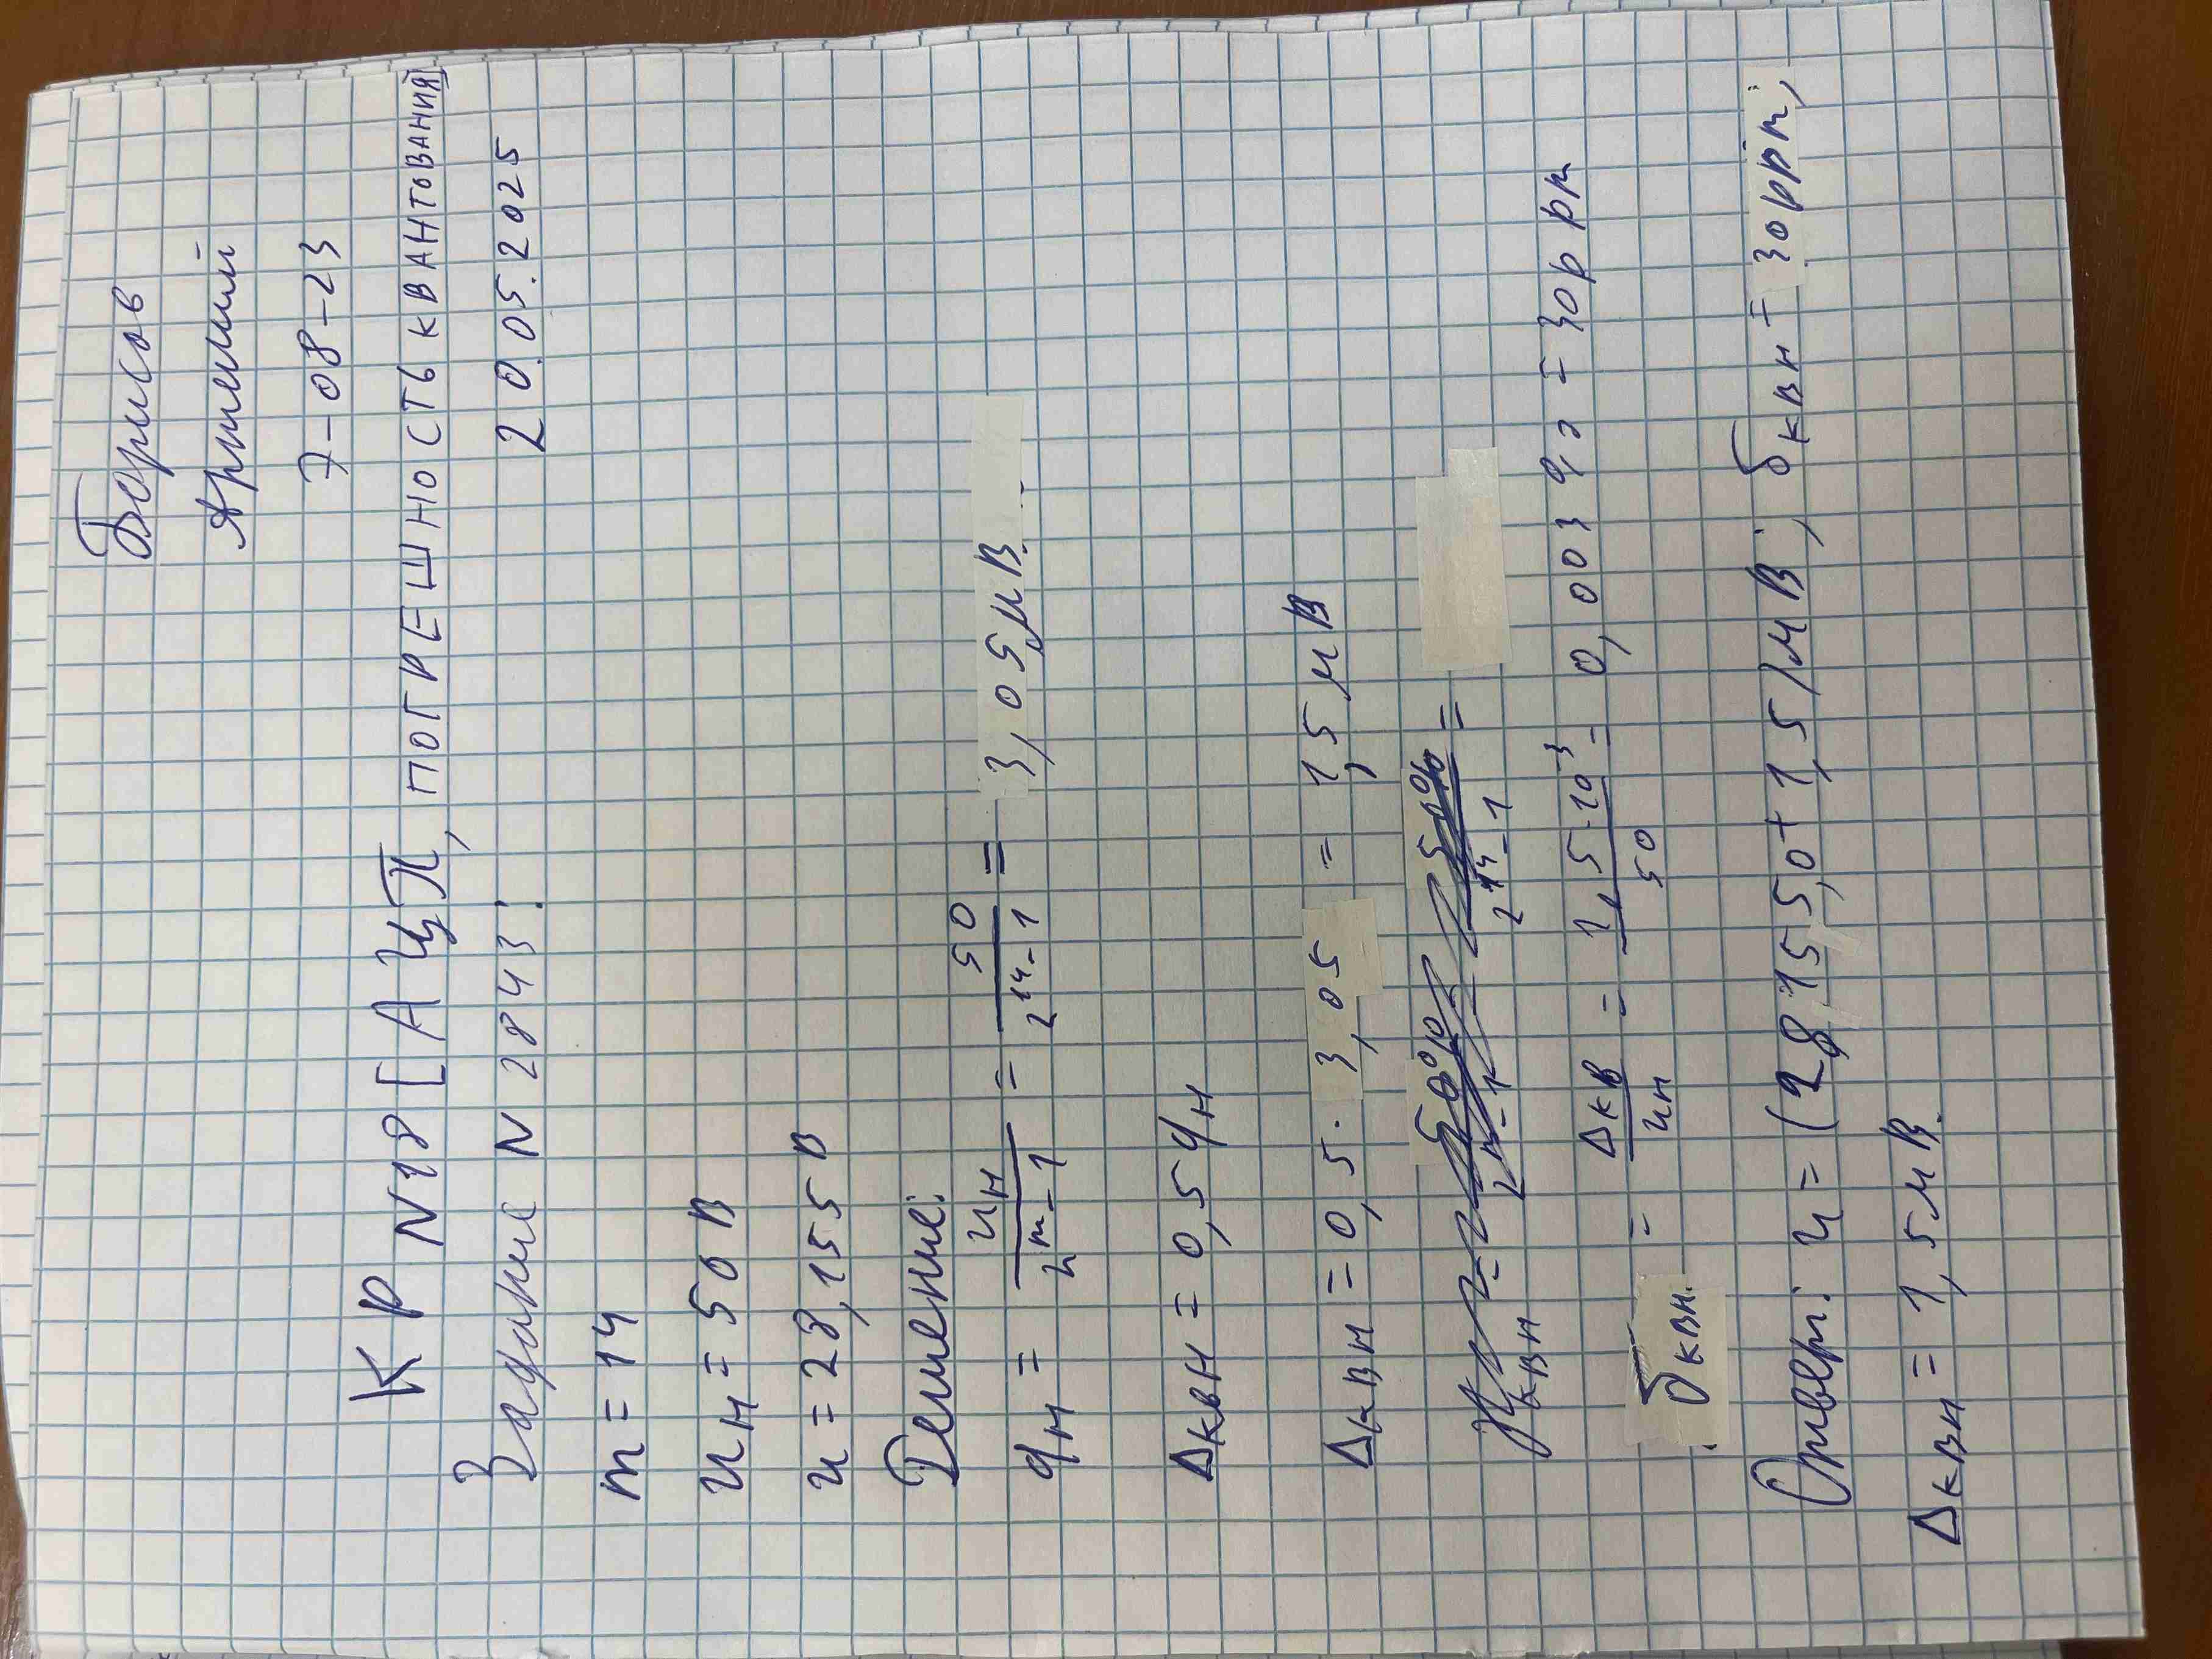 Борисов
Артемий
7-08-23
КР №18 [АЦП, ПОГРЕШНОСТЬ КВАНТОВАНИЯ]
20.05.2025
Задание № 2843:
m = 14
Uн = 50 В
u = 28,155 В
Решение:
qн = Uн / (2^m - 1) = 50 / (2^14 - 1) = 3,05 мВ
Δквн = 0,5 qн
Δквн = 0,5 · 3,05 = 1,5 мВ
квн
= 
δквн. = Δкв / Uн = 1,5·10^-3 / 50 = 0,003 % = 30 ppm
Ответ: u = (28155,0 + 1,5) мВ; δквн = 30 ppm;
Δквн = 1,5 мВ.